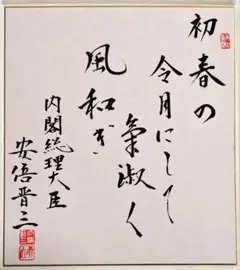 初春の
令月にして
氣淑く
風和ぎ
内閣総理大臣
安倍晋三